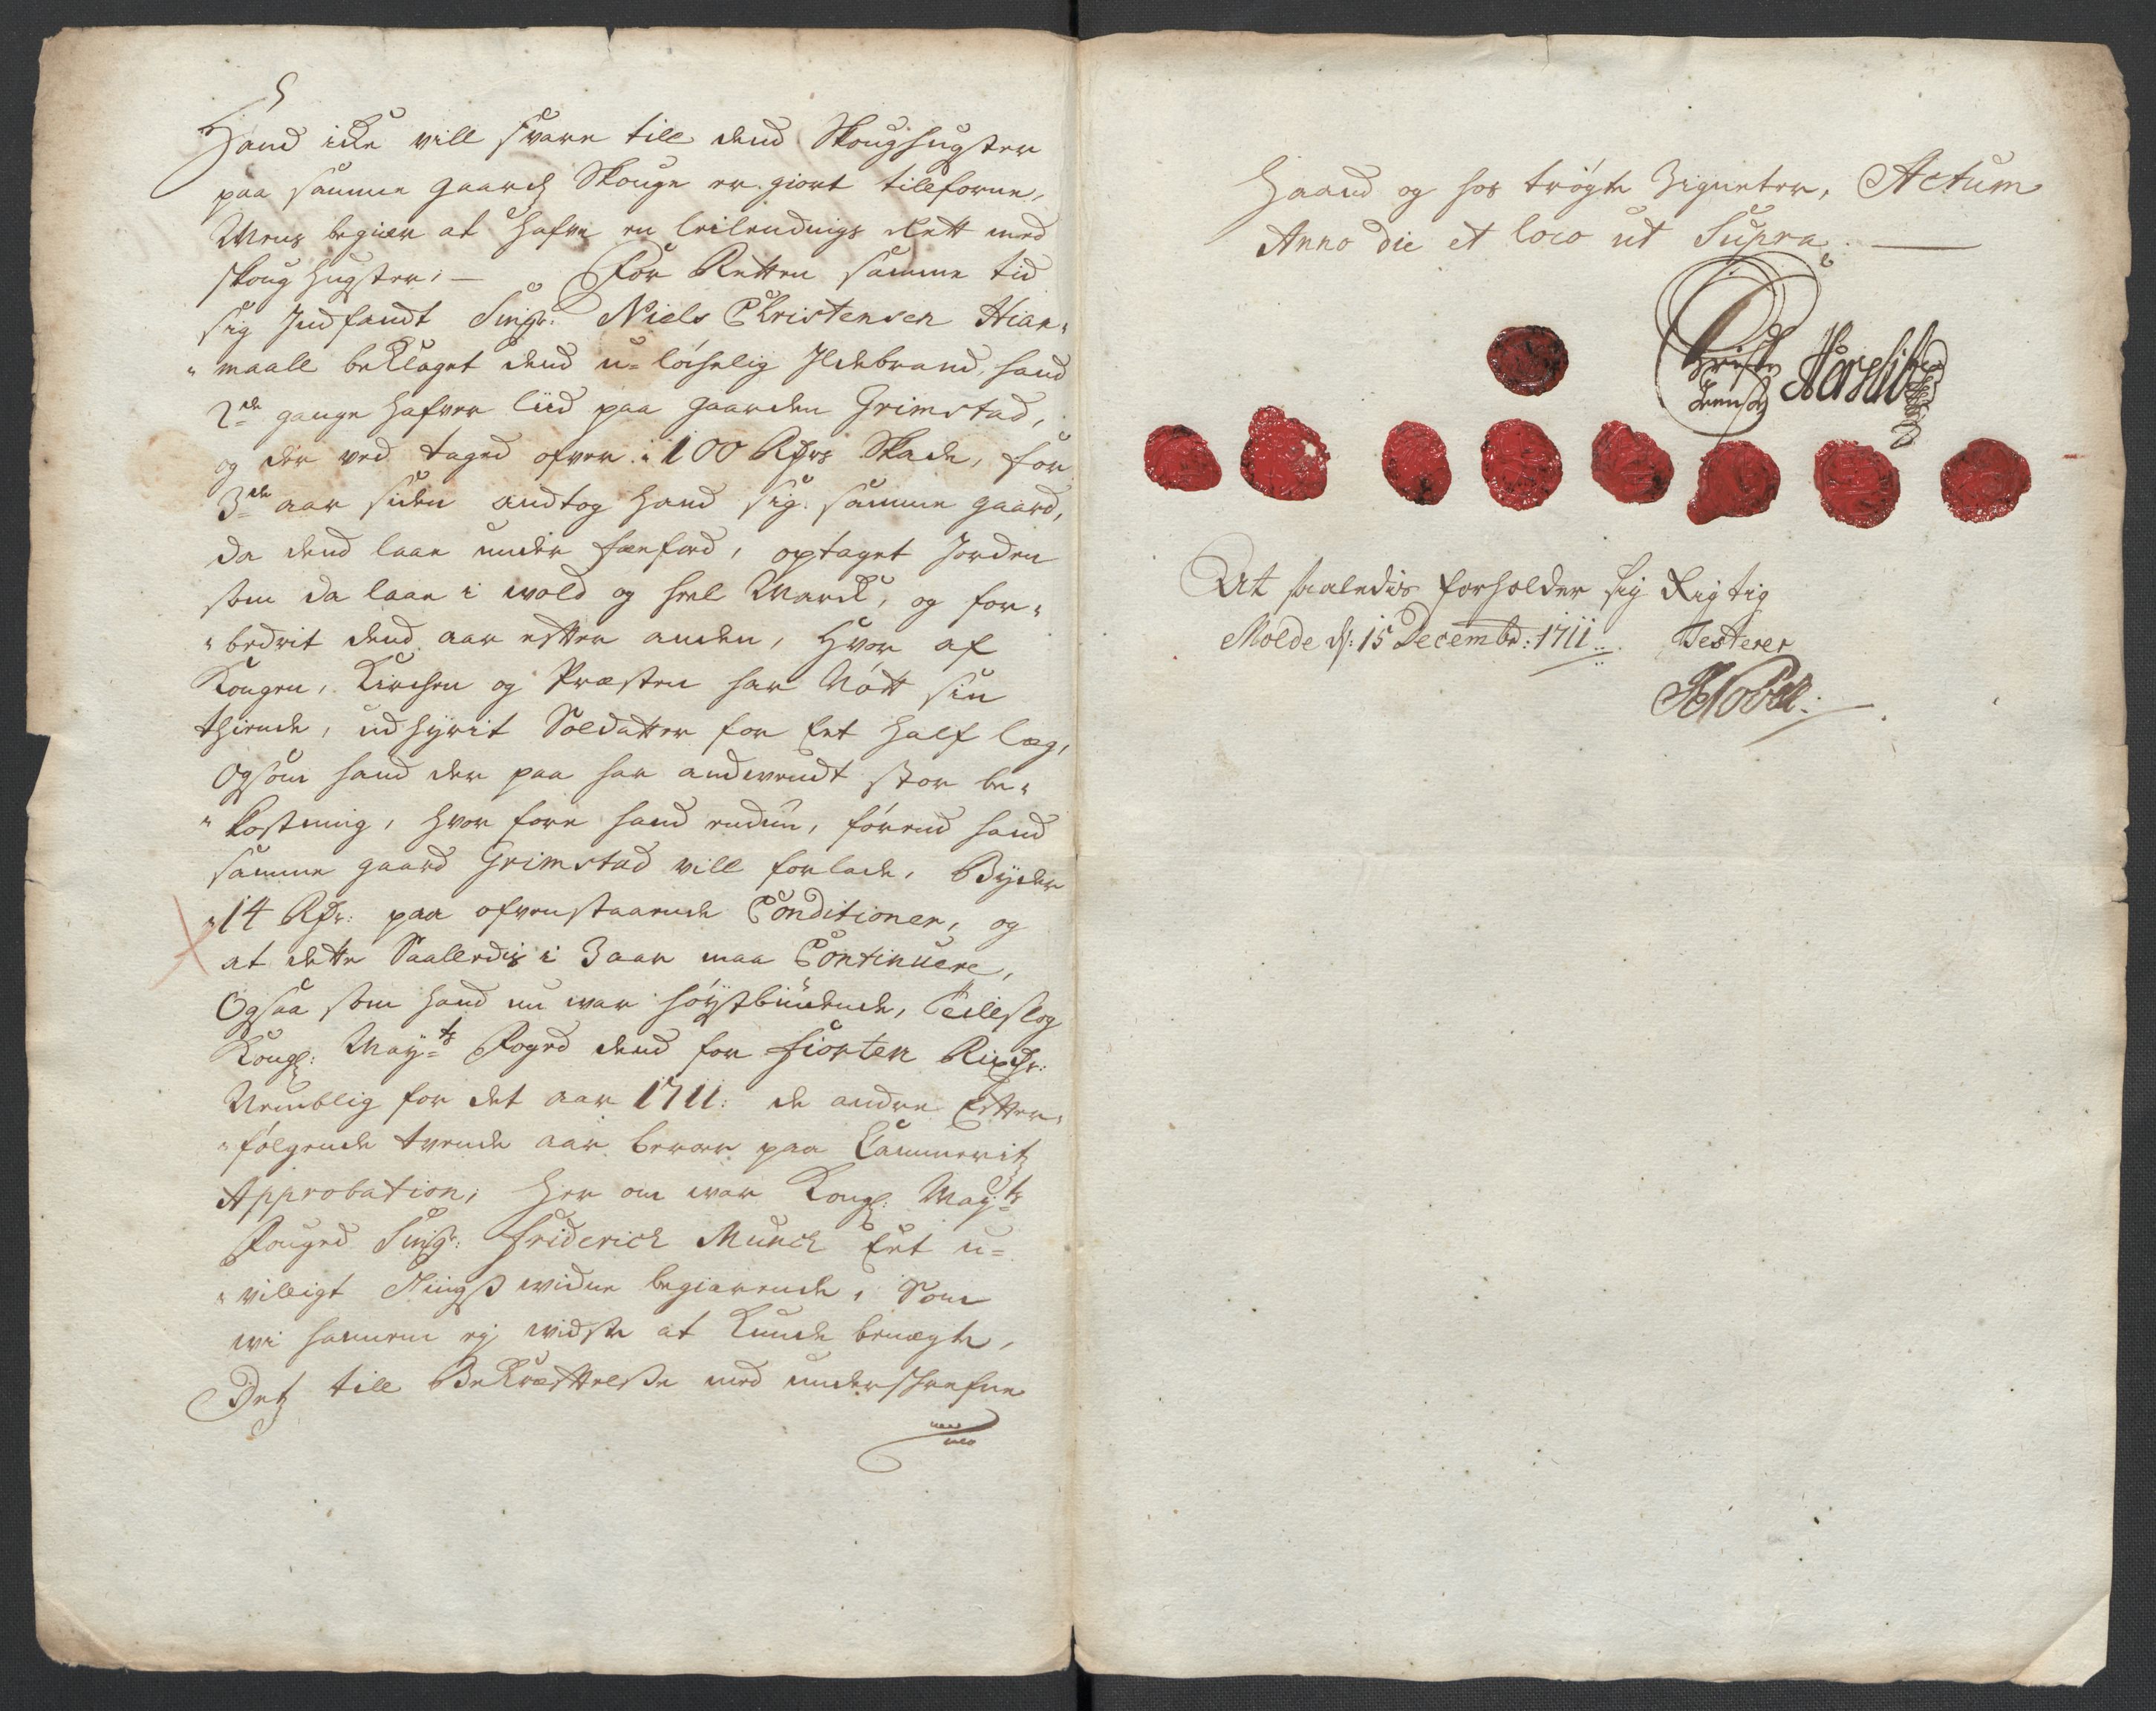 Hand icke vill svare till dend Skoughugster
paa samme gaardz Skouge er giort tillforne,
Mens begiær at hafve en leilendings Rett med
skoug hugster; — For Retten samme tid
sig Indfandt Sinhr: Niels Christensen Hian-
maall beklaget dend u-löchelig Ildebrand, hand
2de gange hafver liid paa gaarden Grimstad,
og der ved taged ofver 100 Rdrs Skade, for
3de aar siden andtog hand sig samme gaard,
da dend laae under , optaget Jorden
som da laae i wold og heel Marck, og for-
bedrit dend aar efter anden, Hvor af
Kongen, Kirchen og Præsten har Nött sin
thiende, udhyrit Soldatter for Eet half læg,
Ogsom hand der paa har andwendt stor be-
kostning, hvor fore hand endnu, förend hand
samme gaard Grimstad vill forlade, Byder
14 Rdr: paa ofvenstaaende Conditioner, og
at dette Saalledis i 3 aar maa Continuere,
Ogsaa som hand nu war höystbiudende, Tillslog
Kongl: May:ts Foged dend for fiorten Rixdr:
Nemblig for det aar 1711: de andre Efter-
fölgende tvende aar beroer paa Cammeritz
Approbation; Her om war Kongl: May:ts
Fouged Sinhr: Friderich Munch Eet u-
villigt Tingswidne begiærende, Som
wi hannem ej widste at kunde benægte,
Detz till Bekræfftelse med underschrefne
Haand og hos trögte Zigneter, Actum
Anno die et loco ut Supra. —
Christen
Jensøn
At saaledis forholder sig Rigtig
Molde d: 15 Decembr: 1711. Testerer